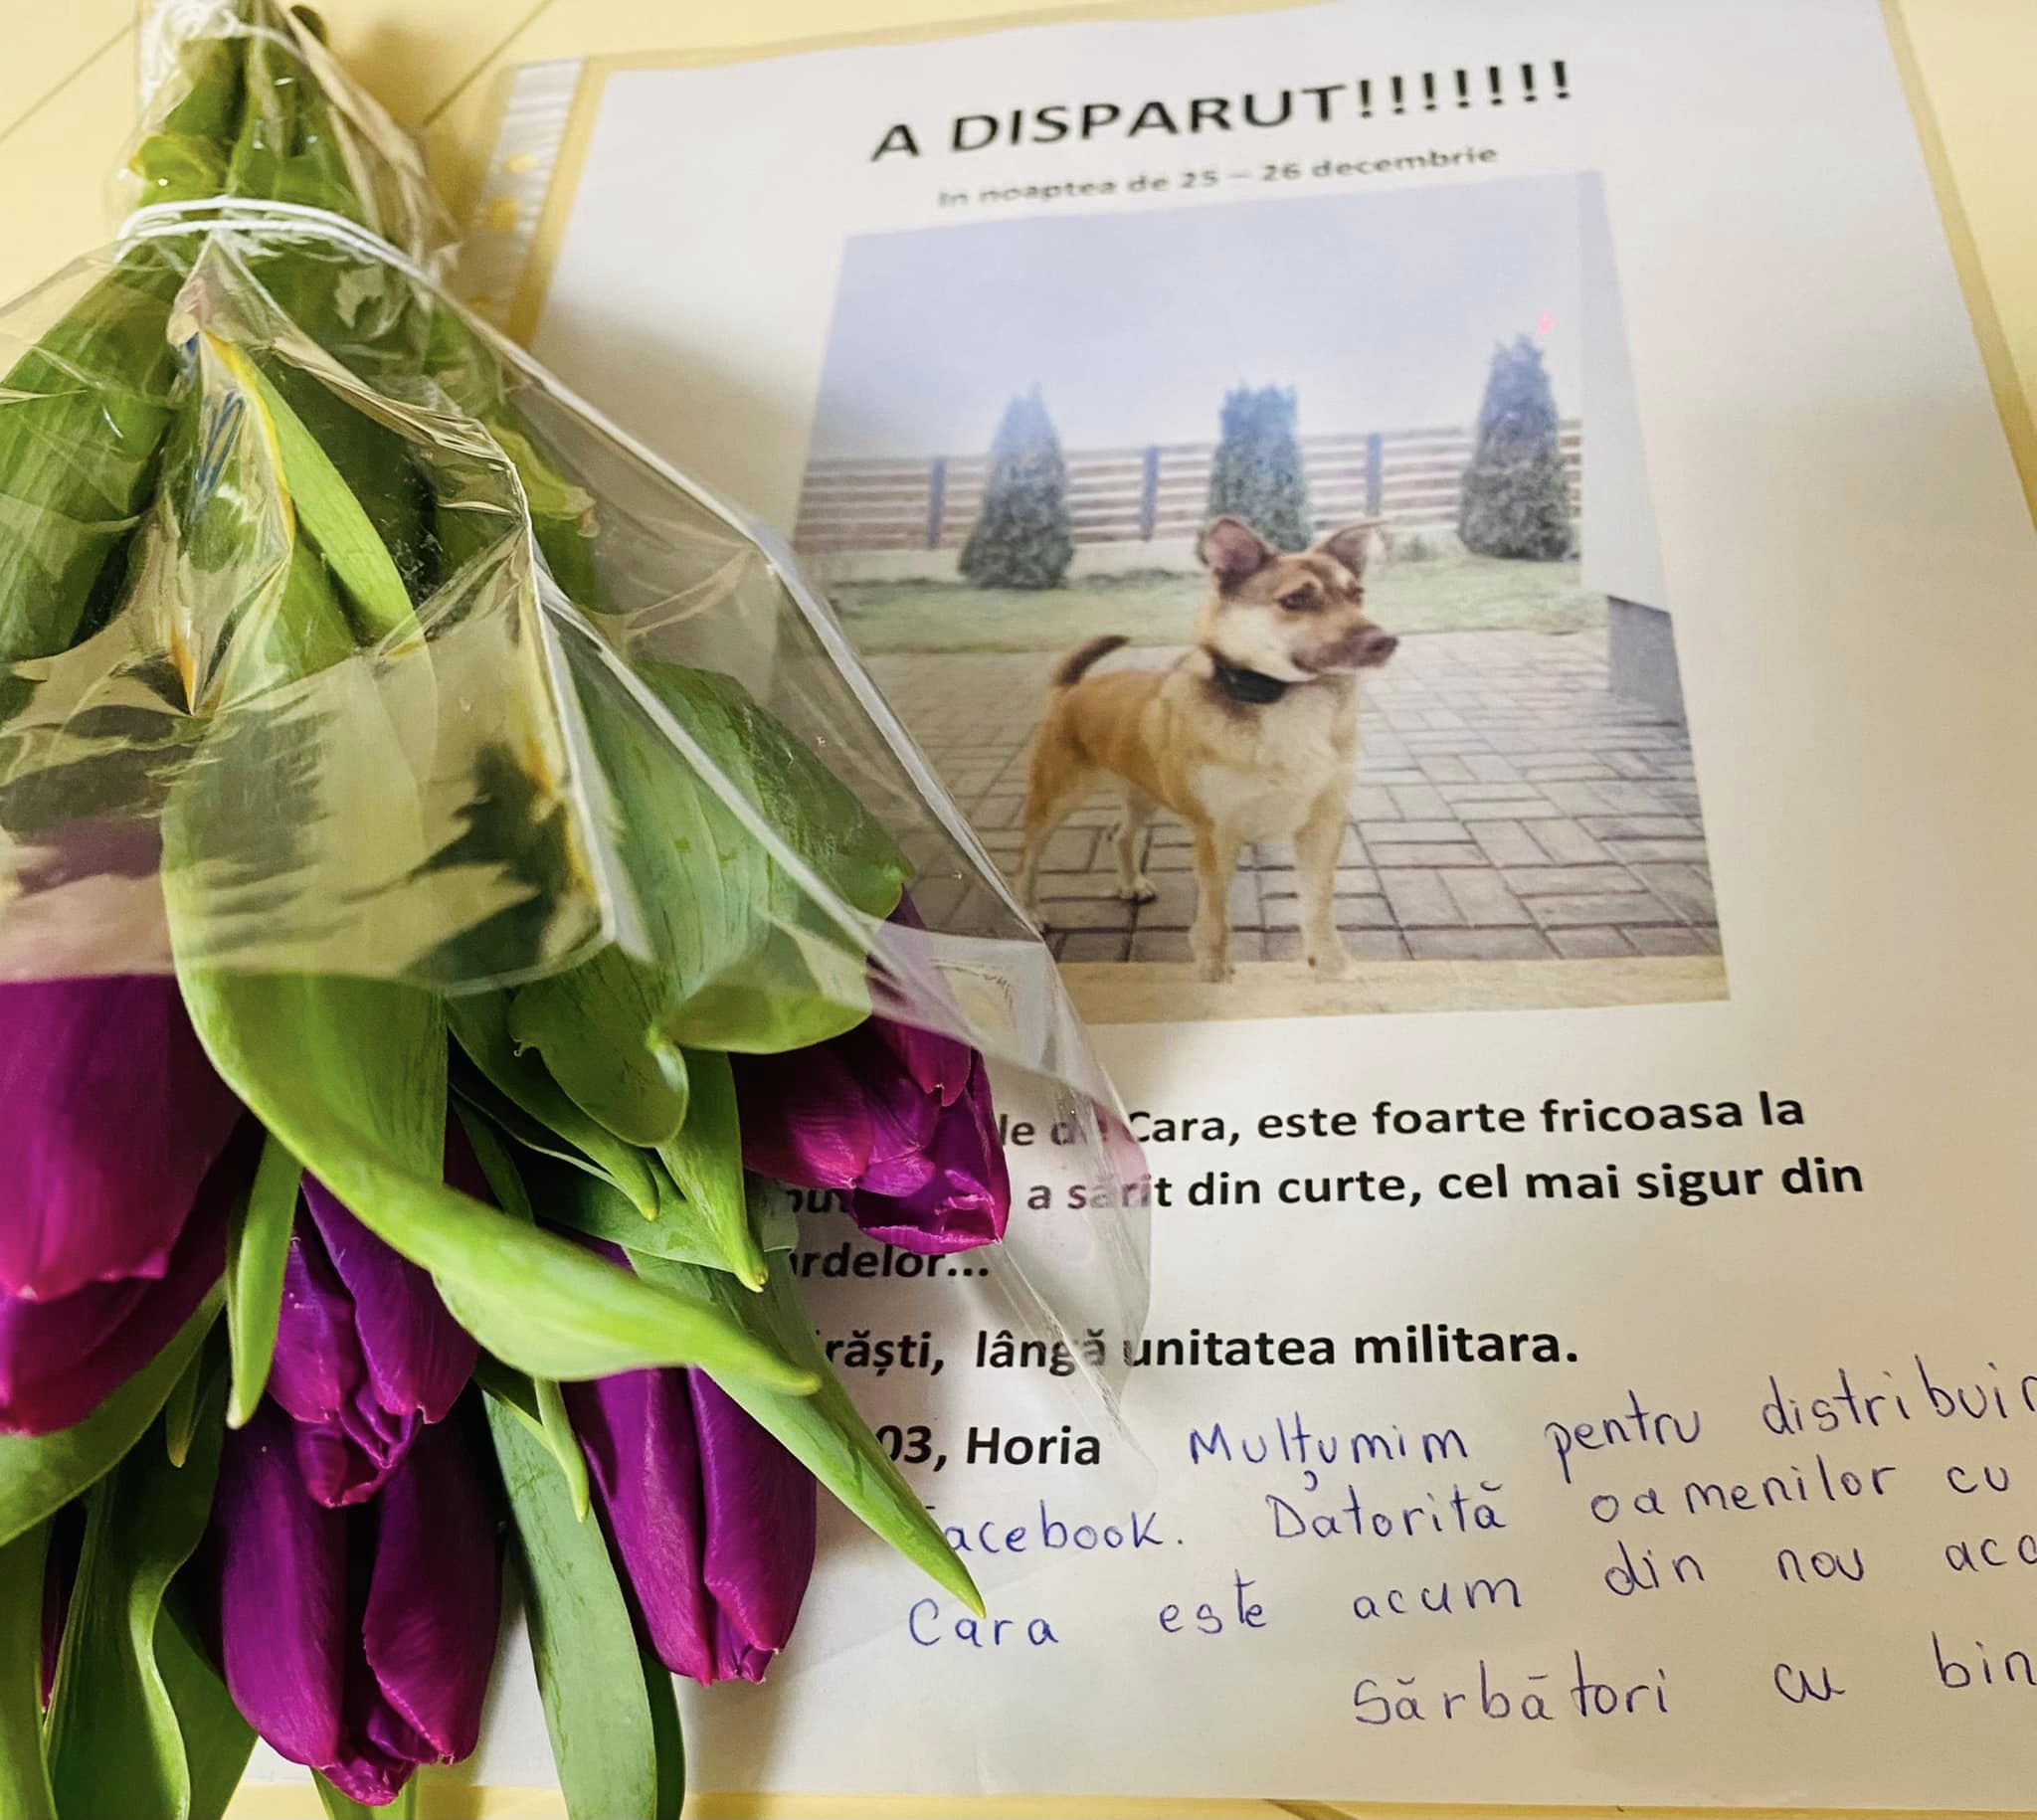 A DISPARUT!!!!!!!
In noaptea de 25 – 26 decembrie
Cara, este foarte fricoasa la
a sărit din curte, cel mai sigur din
lângă unitatea militara.
03, Horia Mulțumim pentru
Datorită oamenilor cu
Cara este acum din nou
Sărbători cu